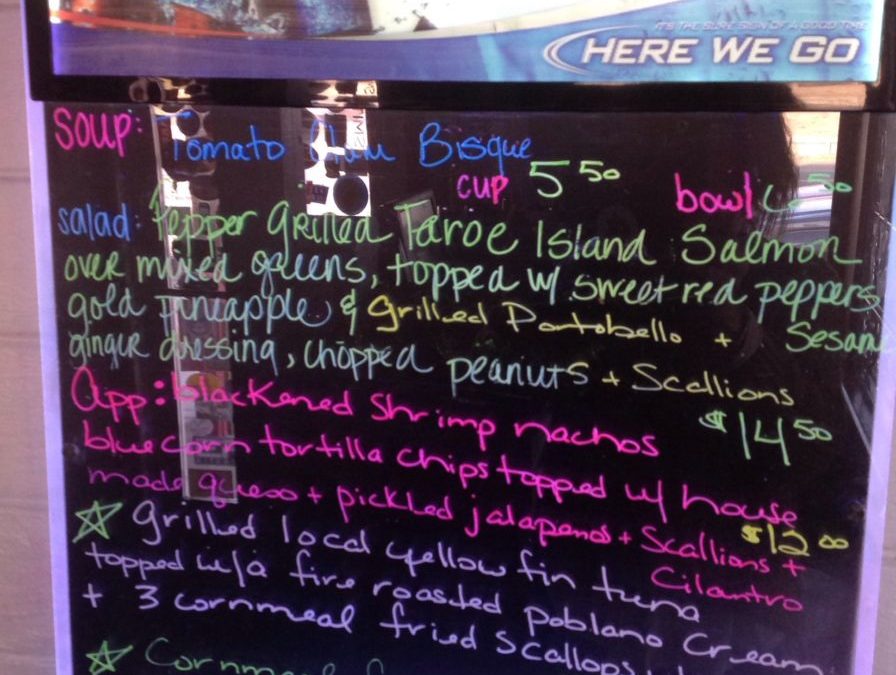 IT'S THE SURE SIGN OF A GOOD TIME
HERE WE GO
SOUP: Tomato Clam Bisque
cup 5 50 bowl 6 50
salad: Pepper Grilled Faroe Island Salmon
over mixed greens, topped w/ sweet red peppers
gold pineapple & Grilled Portobello + Sesam
ginger dressing, chopped peanuts + Scallions
$14 50
App: blackened Shrimp nachos
blue corn tortilla chips topped w/ house
made queso + pickled jalapenos + Scallions +
Cilantro
$12 00
grilled local yellow fin tuna
topped w/a fire roasted poblano Cream
+ 3 cornmeal fried scallops
Cornmeal